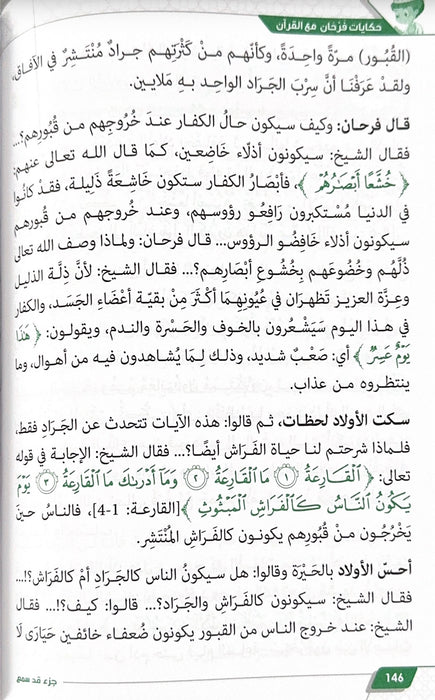 حكايات فَرْحَان مع القرآن
(القُبُور) مرّةً واحِدَةً، وكأنّهم منْ كَثْرَتِهم جرادٌ مُنْتَشِرٌ في الآفاق،
ولقدْ عَرَفْنَا أنَّ سِرْبَ الجَرَاد الواحِد بِه مَلايين.
قـال فرحـان: وكيف سيكون حالُ الكفار عندَ خُرُوجِهم من قُبُورِهم؟...
فقـال الشيخ: سيكونون أذلّاء خَاضِعين، كمَـا قَـال الله تعـالى عنهم:
﴿ خُشَّعًا أَبْصَـٰرُهُمْ ﴾، فأبْصَارُ الكفار ستكون خَاشِعَةً ذَلِيلَة، فقدْ كانُوا
في الدنيـا مُسْـتكبرون رَافِعُو رؤوسهم، وعند خُروجهم من قُبُورهم
سيكونون أذلاء خَافِضُو الرؤوس... قـال فرحان: ولماذا وصف الله تعالى
ذُلَّهُـم وخُضُوعَهم بِخُشُوعِ أبْصَارِهم؟... فقـال الشيخ: لأنَّ ذِلَّةَ الذليل
وعِزَّة العزيز تَظهَـران في عُيُونِهِمَا أكْثَرَ مِنْ بقيّة أعْضَاء الجَسَد، والكفار
في هـذا اليوم سيَشْعُرون بالخوف والحَسْرة والندم، ويقولـون: ﴿ هَٰذَا
يَوْمٌ عَسِرٌ ﴾ أي: صَعْبٌ شديد، وذلك لِمَـا يُشاهدون فيه من أهوال، وما
ينتظروه من عذاب.
سكت الأولاد لحظات، ثـم قالوا: هـذه الآيـات تتحدث عن الجَرَادِ فقط،
فلماذا شرحتم لنا حياة الفَرَاش أيضًا؟... فقال الشيخ: الإجابة في قوله
تعالى: ﴿ ٱلْقَارِعَةُ ١ مَا ٱلْقَارِعَةُ ٢ وَمَآ أَدْرَىٰكَ مَا ٱلْقَارِعَةُ ٣ يَوْمَ
يَكُونُ ٱلنَّاسُ كَٱلْفَرَاشِ ٱلْمَبْثُوثِ ﴾[القارعة: 1-4]، فالناسُ حينَ
يَخْرُجُون منْ قُبُورِهم يكونـون كالفَرَاشِ المُنْتَشِر.
أحـسّ الأولاد بالحَيْرَة وقالوا: هل سيكونُ الناس كالجَرَادِ أمْ كالفَرَاش؟!...
فقال الشيخ: سيكونون كالفَرَاشِ والجَرَاد؟... قالـوا: كيف؟!... فقال
الشيخ: عند خروج الناس من القبور يكونون ضُعفاء خائفين حَيَارَى لَا
146
جزء قد سمع